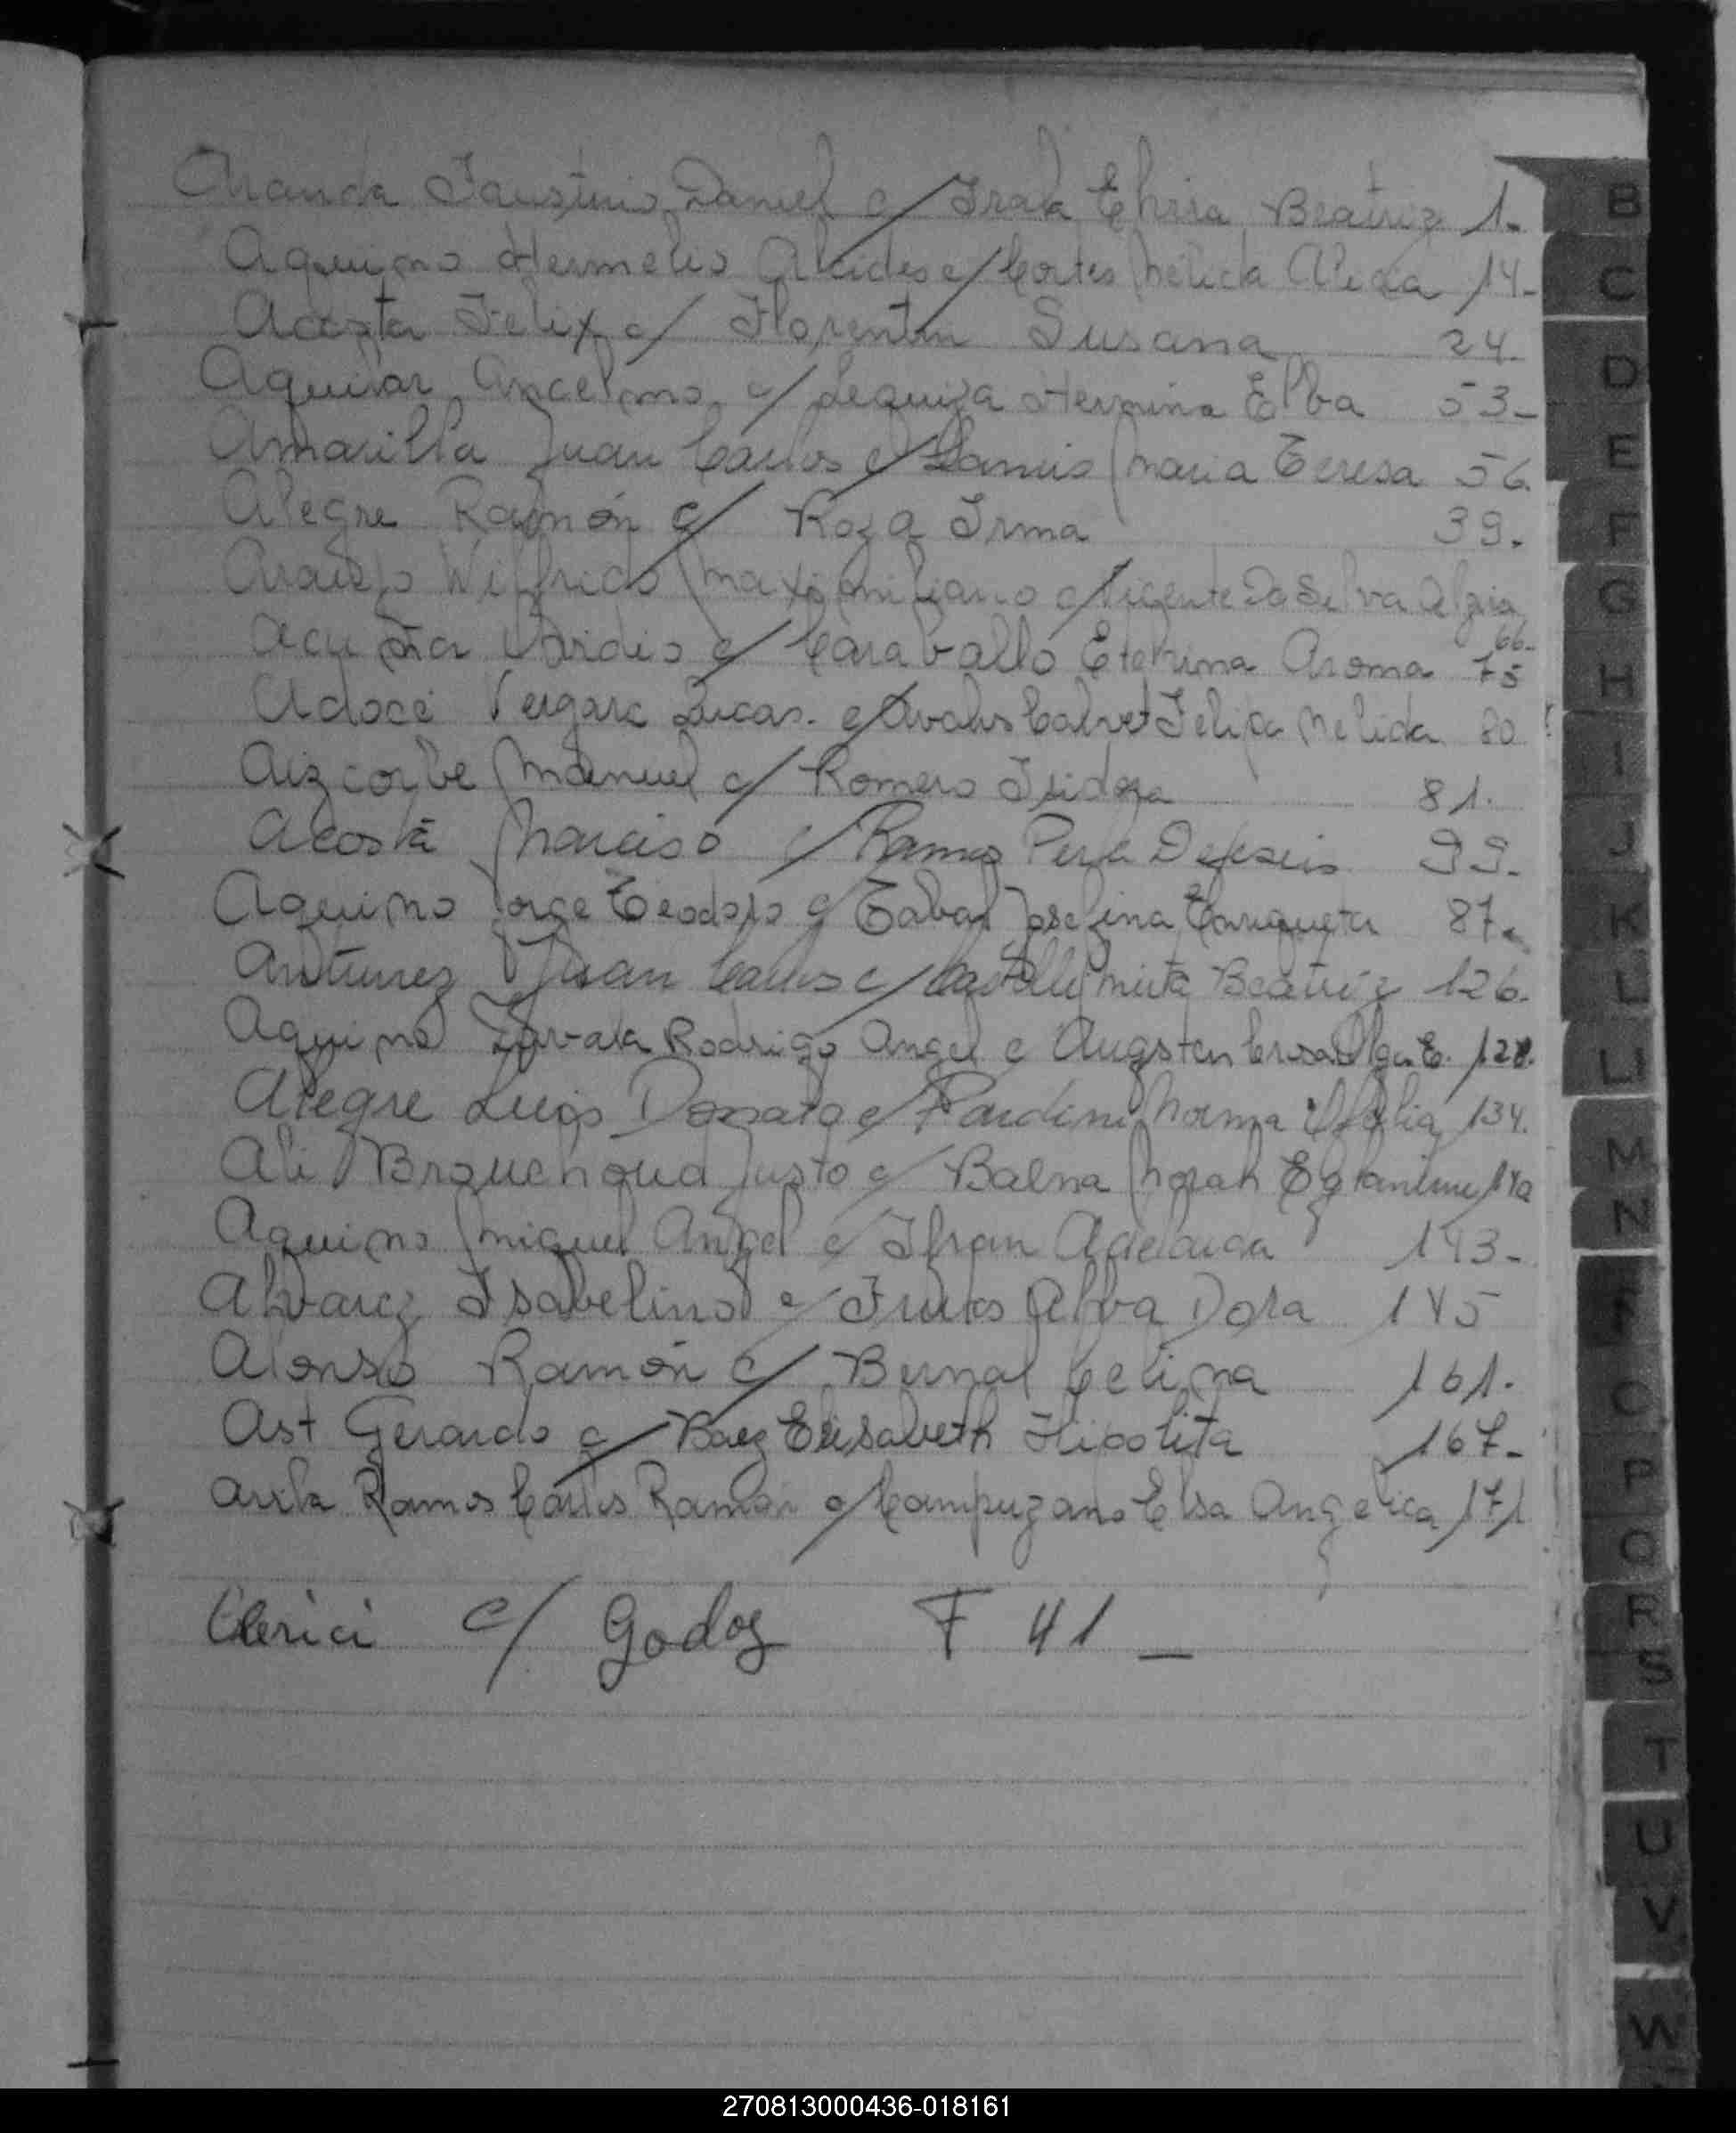 Aranda Faustino Daniel c/ Irala Elvira Beatriz 1.
Aquino Hermelio Alcides c/ Cortes Nélida Alicia 14-
Acosta Felix c/ Florentin Susana 24-
Aguilar Ancelmo c/ Lequiza Herminia Elba 53-
Amarilla Juan Carlos c/ Maria Teresa 56.
Alegre Ramón c/ Roza Irma 39.
Araujo Wilfrido Maximiliano c/ Vicente Da Silva Alzira
66-
Acuña c/ Caraballo Etelvina Aroma 75
Adoce Vergara Lucas. c/ Avalos Calvet Felipa Nelida 80
Aizcorbe Manuel c/ Romero Isidora 81.
Acosta Narciso c/ Ramos Perla 99-
Aquino Jorge Teodoro c/ Tabal Josefina Enriqueta 87.
Antunez Juan Carlos c/ Castelli Mirta Beatriz 126.
Aquino Zarvala Rodrigo Angel c Augsten Olga E. 128.
Alegre Luis Donato c/ Pardini Norma Ofelia 134.
Ali Brouchoud Justo c/ Balna Norah Eglantine 140
Aquino Miguel Angel c/ Ifran Adelaida 143-
Alvarez Isabelino c/ Frutos Alba Dora 145
Alonso Ramón c/ Bernal Celina 161.
Ast Gerardo c/ Baez Elisabeth Hipolita 167-
Avila Ramos Carlos Ramón c/ Campuzano Elsa Angelica 171
Clerici c/ Godoy F 41 -
B
C
D
E
F
G
H
I
J
K
L
LL
M
N
Ñ
O
P
Q
R
S
T
U
V
W
270813000436-018161